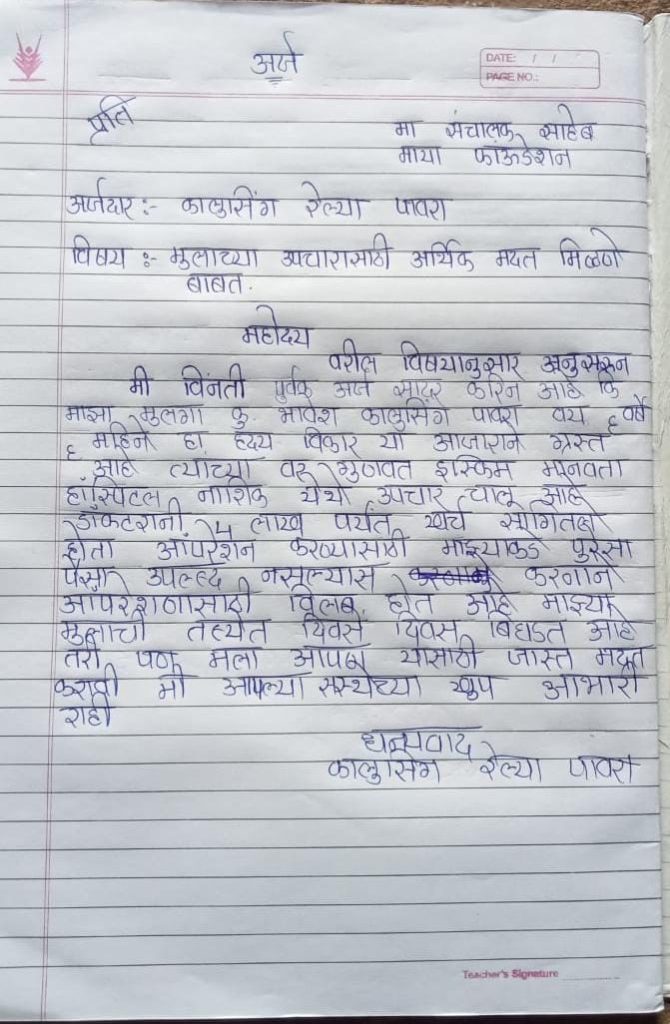 अर्ज
DATE: / /
PAGE NO.:
प्रति
मा संचालक साहेब
माया फाऊंडेशन
अर्जदार :- कालुसिंग रेल्या पावरा
विषय :- मुलाच्या उपचारासाठी आर्थिक मदत मिळणे
बाबत.
महोदय
वरील विषयानुसार अनुसरून
मी विनंती पुर्वक अर्ज सादर करित आहे कि
माझा मुलगा कु. भावेश कालुसिंग पावरा वय ६ वर्षे
६ महिने हा हृदय विकार या आजाराने ग्रस्त
आहे त्याच्या वर मानवता
हॉस्पिटल नाशिक येथे उपचार चालू आहे
डॉकटरांनी 4 लाख पर्यंत खर्च सांगितला
होता ऑपरेशन करण्यासाठी माझ्याकडे पुरेसा
पैसा उपल्ब्द नसल्यास करनाने
आपरेशनासाठी विलंब होत आहे माझ्या
मुलाची तब्येत दिवसे दिवस बिघडत आहे
तरी पण मला आपण यासाठी जास्त मदत
करावी मी आपल्या संस्थेच्या खुप आभारी
राही
धन्यवाद
कालुसिंग रेल्या पावरा
Teacher's Signature